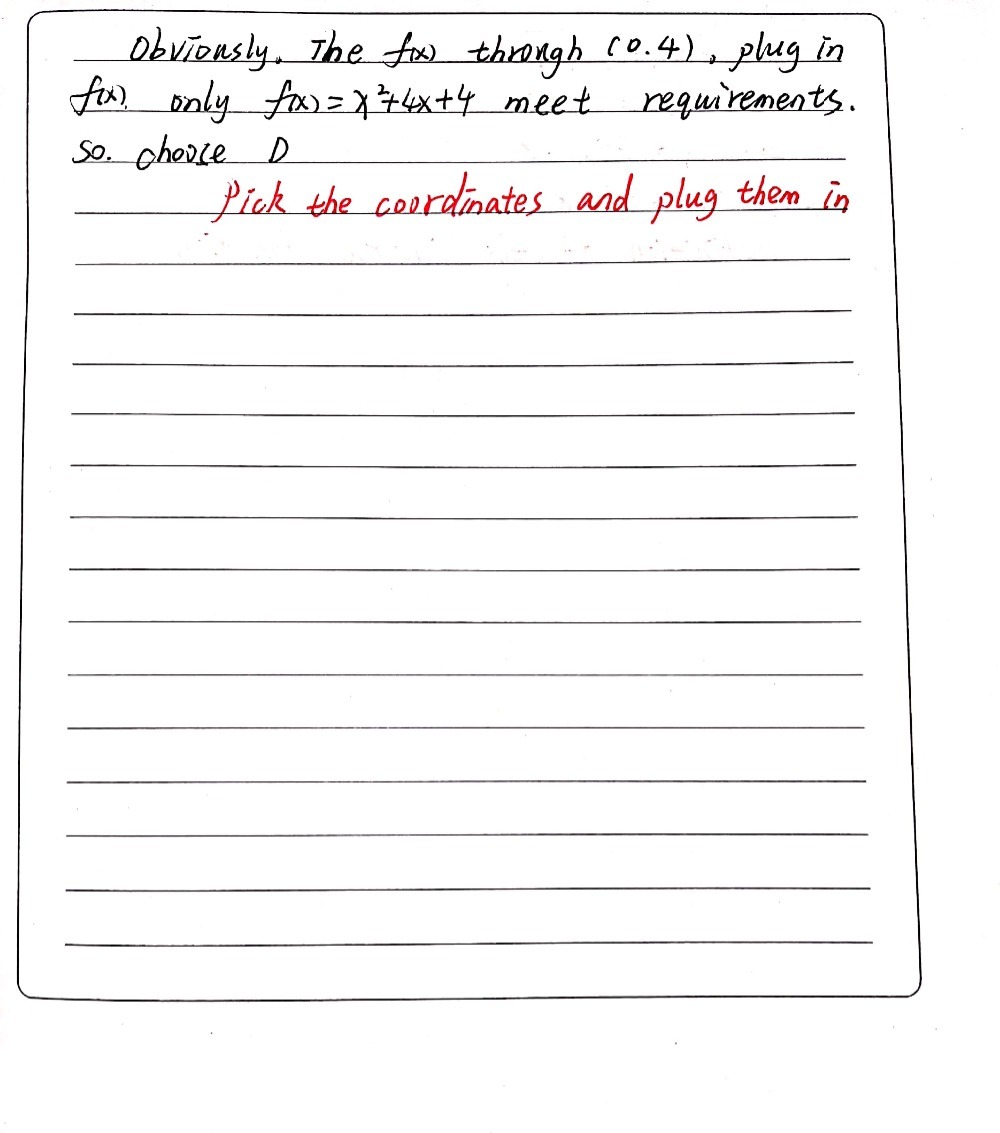 Obviously. The f(x) through (0.4), plug in
f(x). only f(x) = x²+4x+4 meet requirements.
So. choose D
Pick the coordinates and plug them in